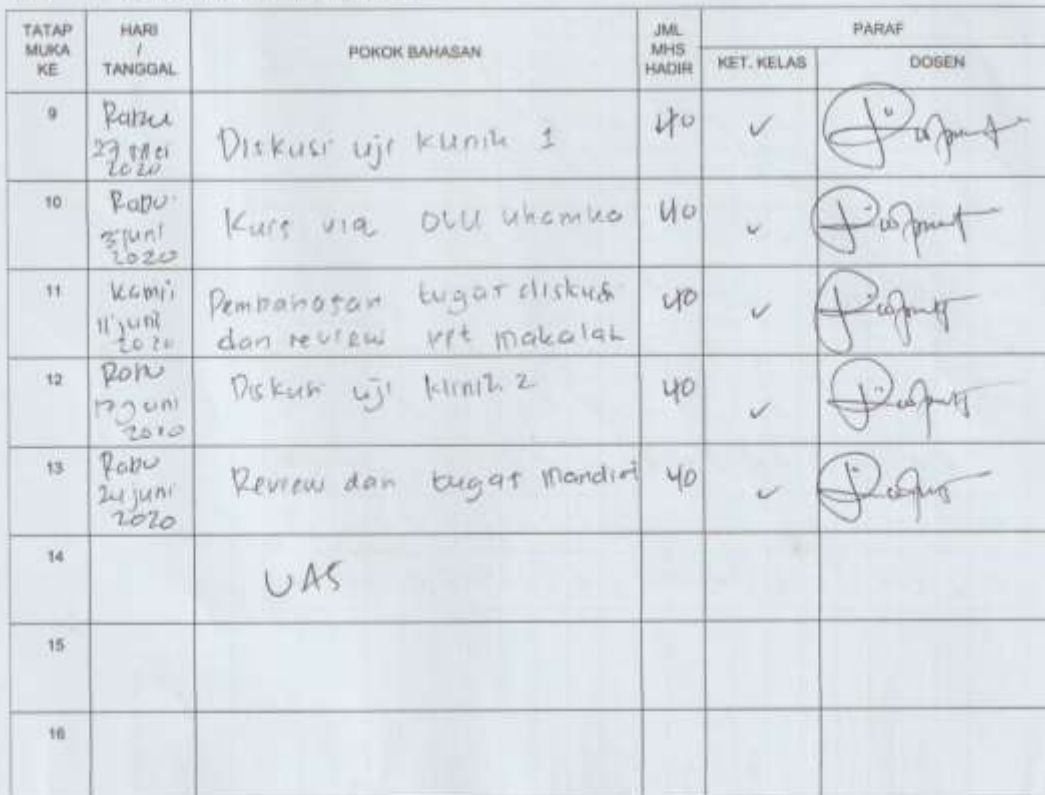 TATAP MUKA KE
HARI / TANGGAL
POKOK BAHASAN
JML MHS HADIR
PARAF
KET. KELAS
DOSEN
9
Rabu
27 Mei
2020
Diskusi uji klinik 1
40
✓
10
Rabu
3 Juni
2020
Kuis via OLU uhamka
40
✓
11
Kamis
11 Juni
2020
Pembahasan tugas diskusi
dan review ppt makalah
40
✓
12
Rabu
17 Juni
2020
Diskusi uji klinik 2
40
✓
13
Rabu
24 juni
2020
Review dan tugas Mandiri
40
✓
14
UAS
15
16